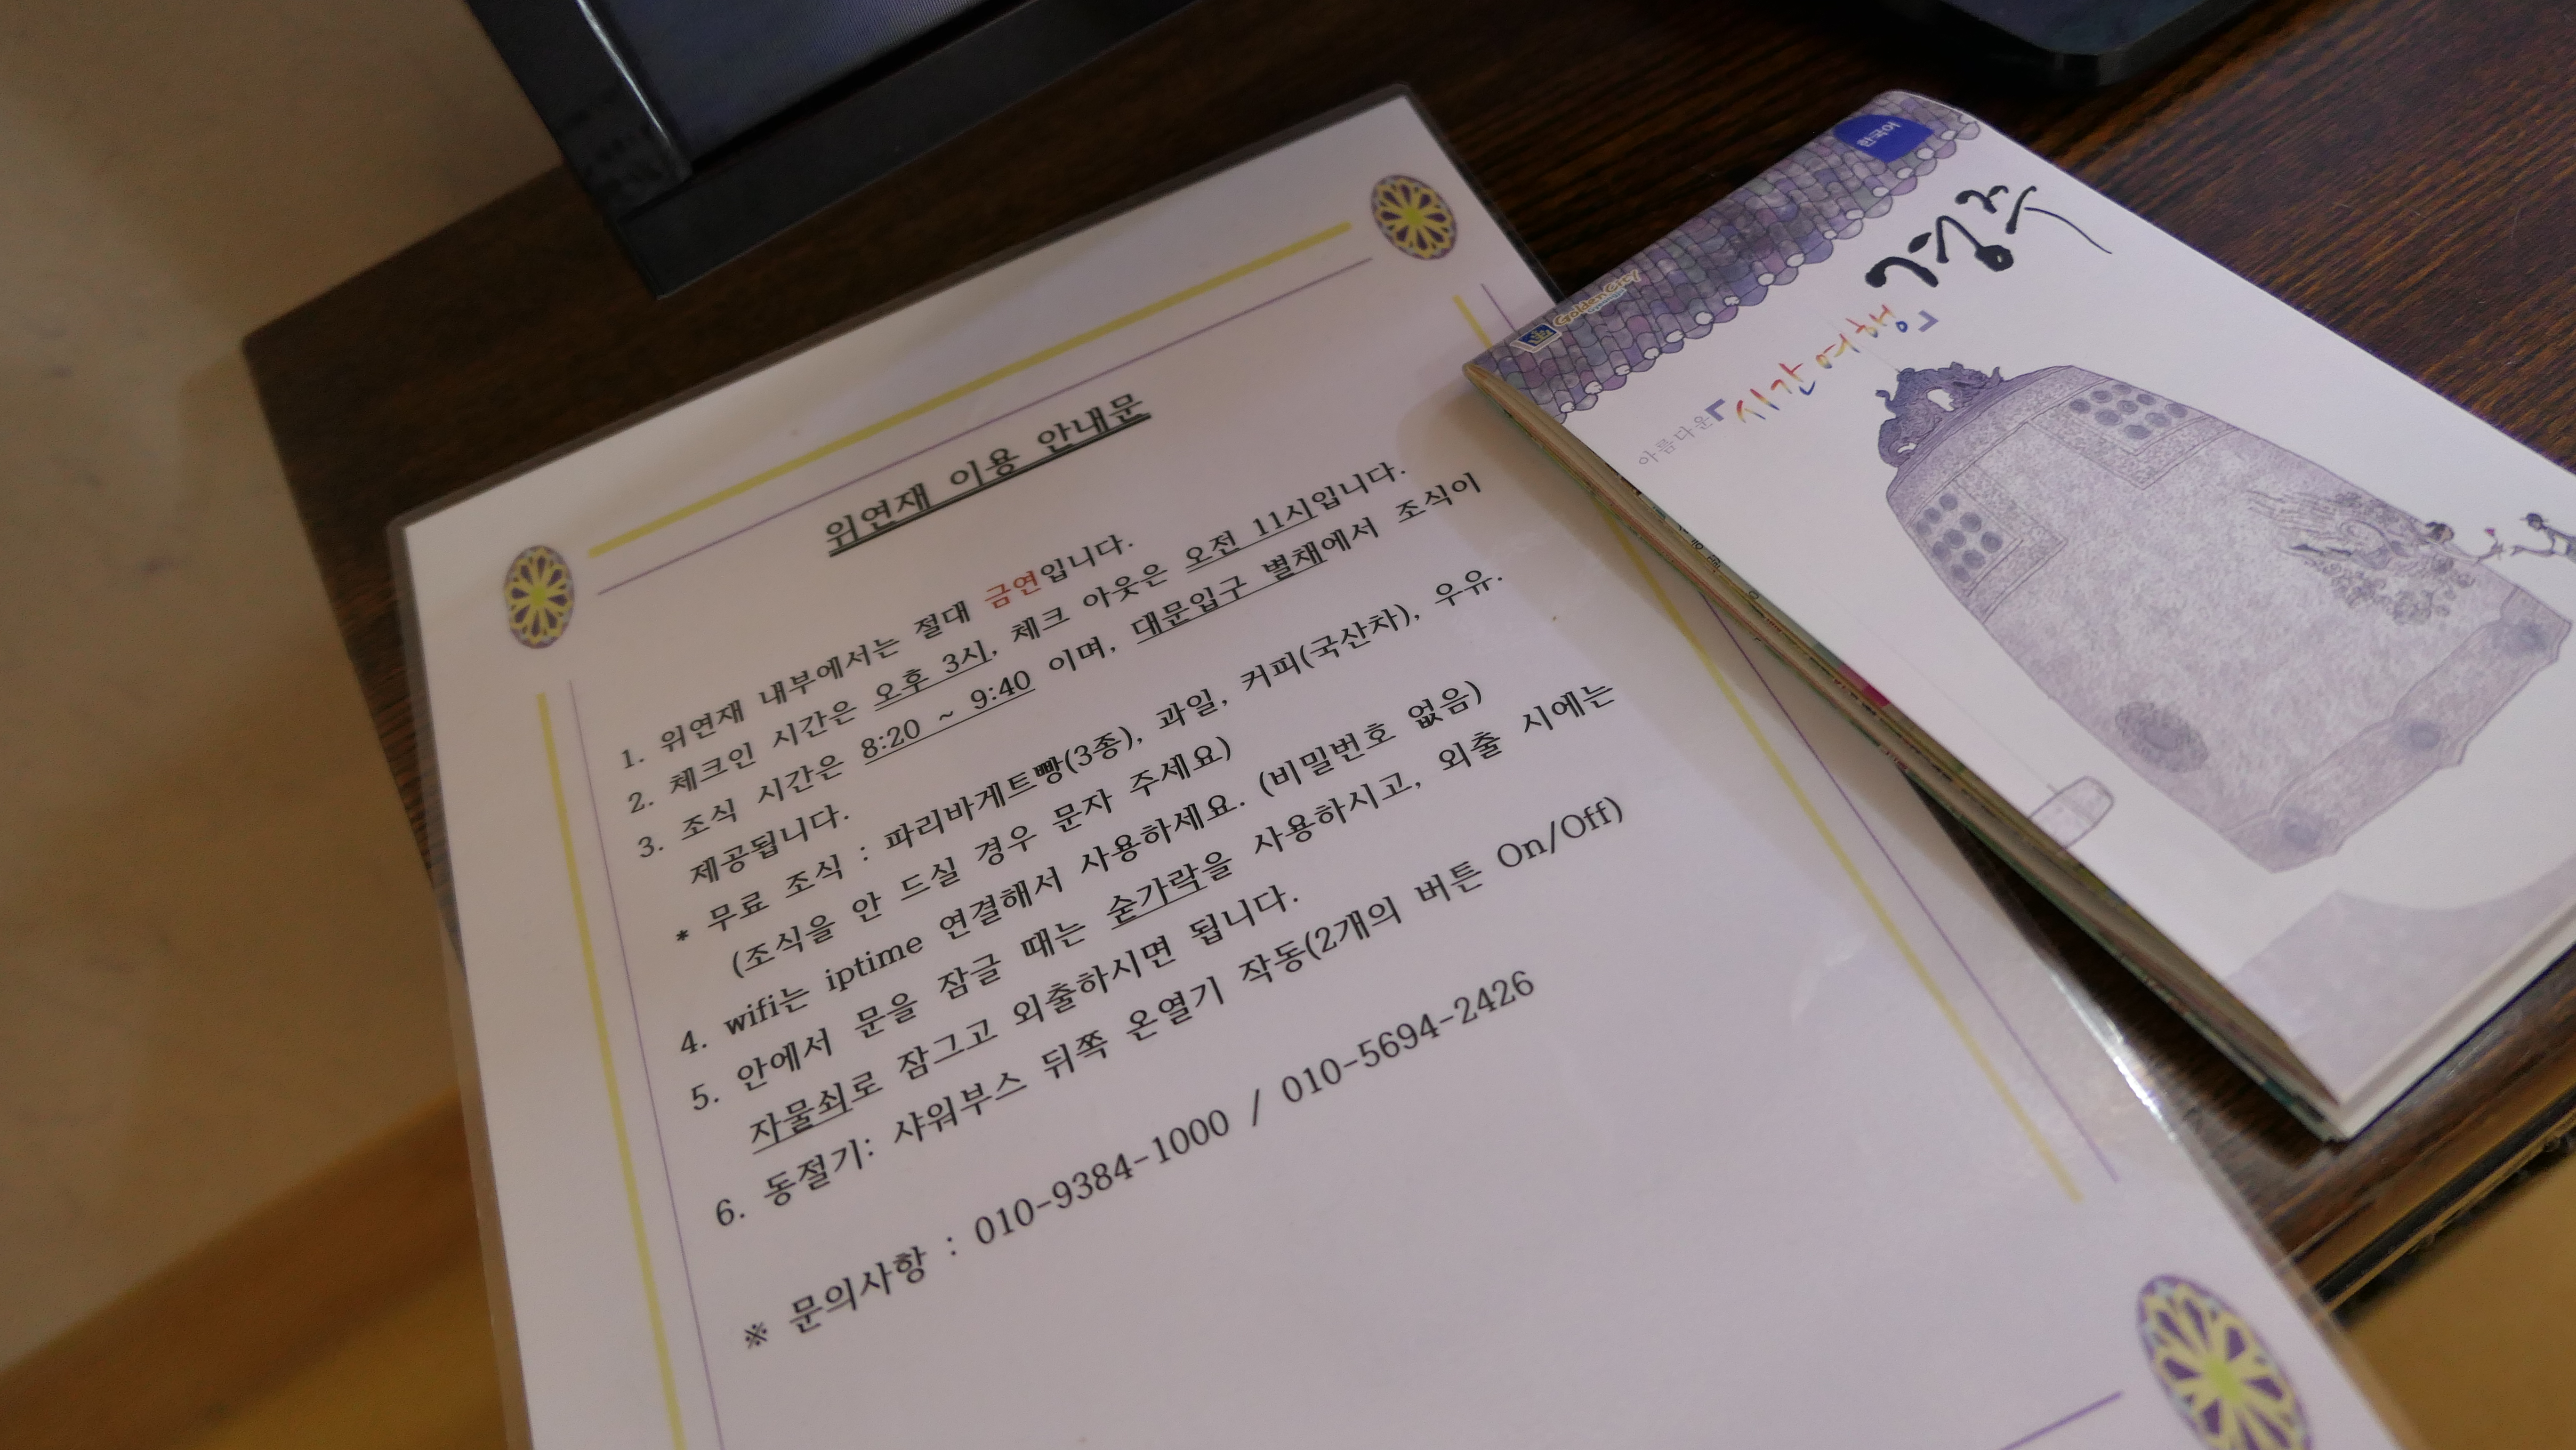 위연재 이용 안내문
1. 위연재 내부에서는 절대 금연입니다.
2. 체크인 시간은 오후 3시, 체크 아웃은 오전 11시입니다.
3. 조식 시간은 8:20 ~ 9:40 이며, 대문입구 별채에서 조식이
제공됩니다.
* 무료 조식 : 파리바게트빵(3종), 과일, 커피(국산차), 우유.
(조식을 안 드실 경우 문자 주세요)
4. wifi는 iptime 연결해서 사용하세요. (비밀번호 없음)
5. 안에서 문을 잠글 때는 숟가락을 사용하시고, 외출 시에는
자물쇠로 잠그고 외출하시면 됩니다.
6. 동절기: 샤워부스 뒤쪽 온열기 작동(2개의 버튼 On/Off)
※ 문의사항 : 010-9384-1000 / 010-5694-2426
한국어
Golden City
경주
아름다운 『시간여행』